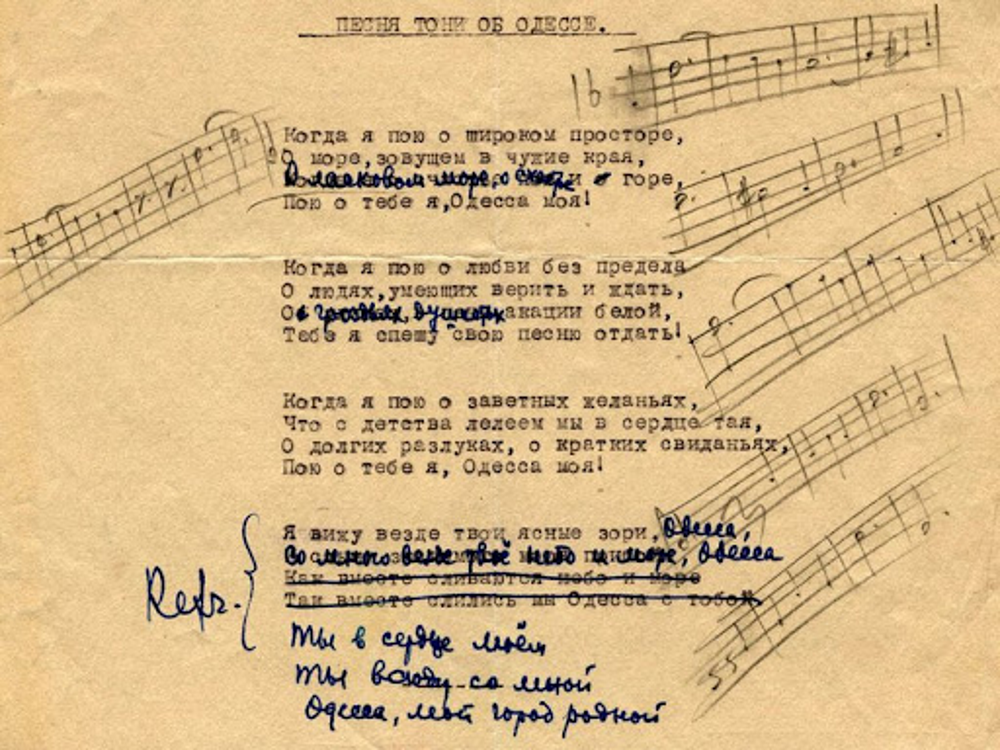 ПЕСНЯ ТОНИ ОБ ОДЕССЕ.
16
Когда я пою о широком просторе,
О море, зовущем в чужие края,
О ласковом море, о счастье и горе,
Пою о тебе я, Одесса моя!
Когда я пою о любви без предела
О людях, умеющих верить и ждать,
акации белой,
Тебе я спешу свою песню отдать!
Когда я пою о заветных желаньях,
Что с детства лелеем мы в сердце тая,
О долгих разлуках, о кратких свиданьях,
Пою о тебе я, Одесса моя!
Я вижу везде твои ясные зори, Одесса,
Со мною везде твоё небо и море, Одесса
Как вместе сливаются небо и море
Так вместе слились мы Одесса с тобой,
Refr.
Ты в сердце моём
Ты всюду со мной
Одесса, мой город родной